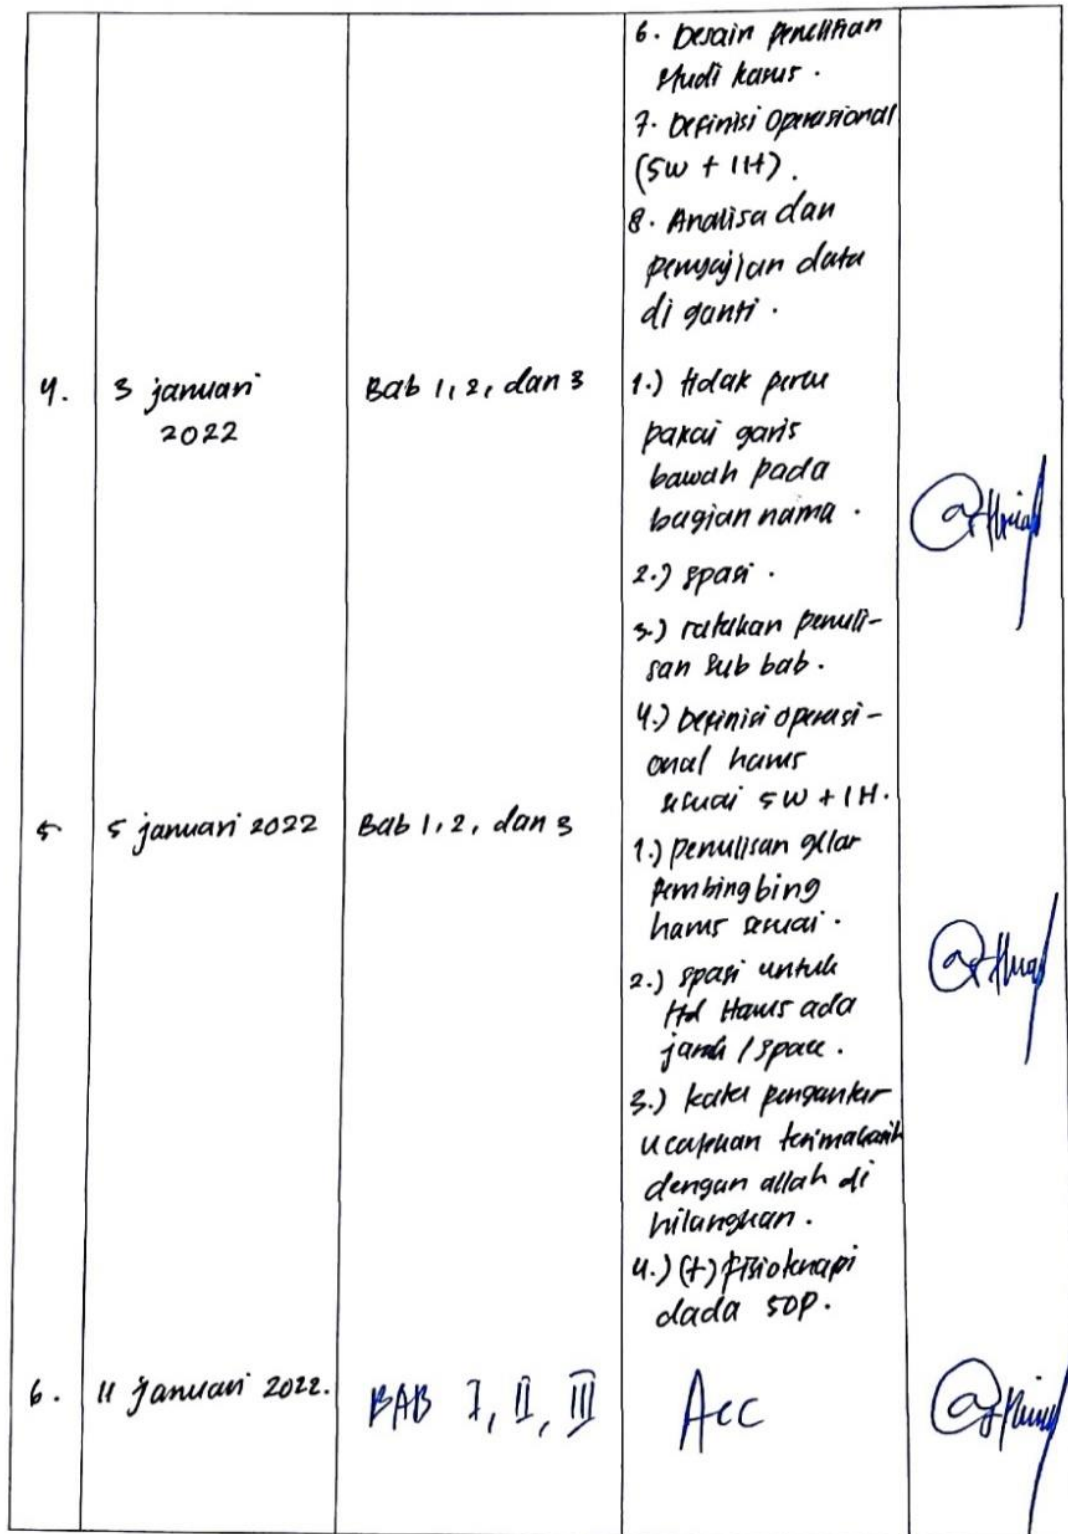 6. Desain penelitian
studi kasus.
7. Definisi Operasional
(5W + 1H).
8. Analisa dan
penyajian data
di ganti.
4. 3 januari Bab 1, 2, dan 3 1.) tidak perlu
2022 pakai garis
bawah pada
bagian nama.
2.) spasi.
3.) ratakan penuli-
san sub bab.
4.) Definisi operasi-
onal harus
sesuai 5W + 1H.
5 5 januari 2022 Bab 1, 2, dan 3
1.) penulisan gelar
pembingbing
harus sesuai.
2.) spasi untuk
ttd Harus ada
jarak / space.
3.) kata pengantar
ucapkan terimakasih
dengan allah di
hilangkan.
4.) (+) fisioterapi
dada SOP.
6. 11 januari 2022. BAB I, II, III Acc